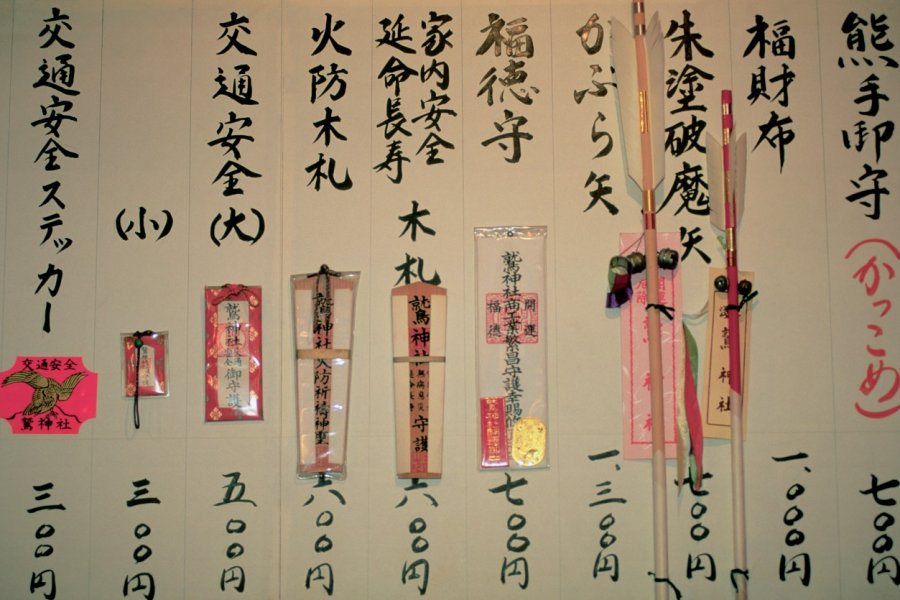 熊手御守
(かっこめ)
七〇〇円
福財布
一、〇〇〇円
朱塗破魔矢
〇〇円
神社
かぶら矢
一、三〇〇円
福徳守
鷲神社商工業繁昌守護幸賜
開運
福徳
七〇〇円
家内安全
延命長寿
木札
鷲神社
守護
六〇〇円
火防木札
鷲神社火防祈祷神璽
〇〇円
交通安全(大)
鷲神社
交通安全
御守護
五〇〇円
(小)
三〇〇円
交通安全ステッカー
交通安全
鷲神社
三〇〇円